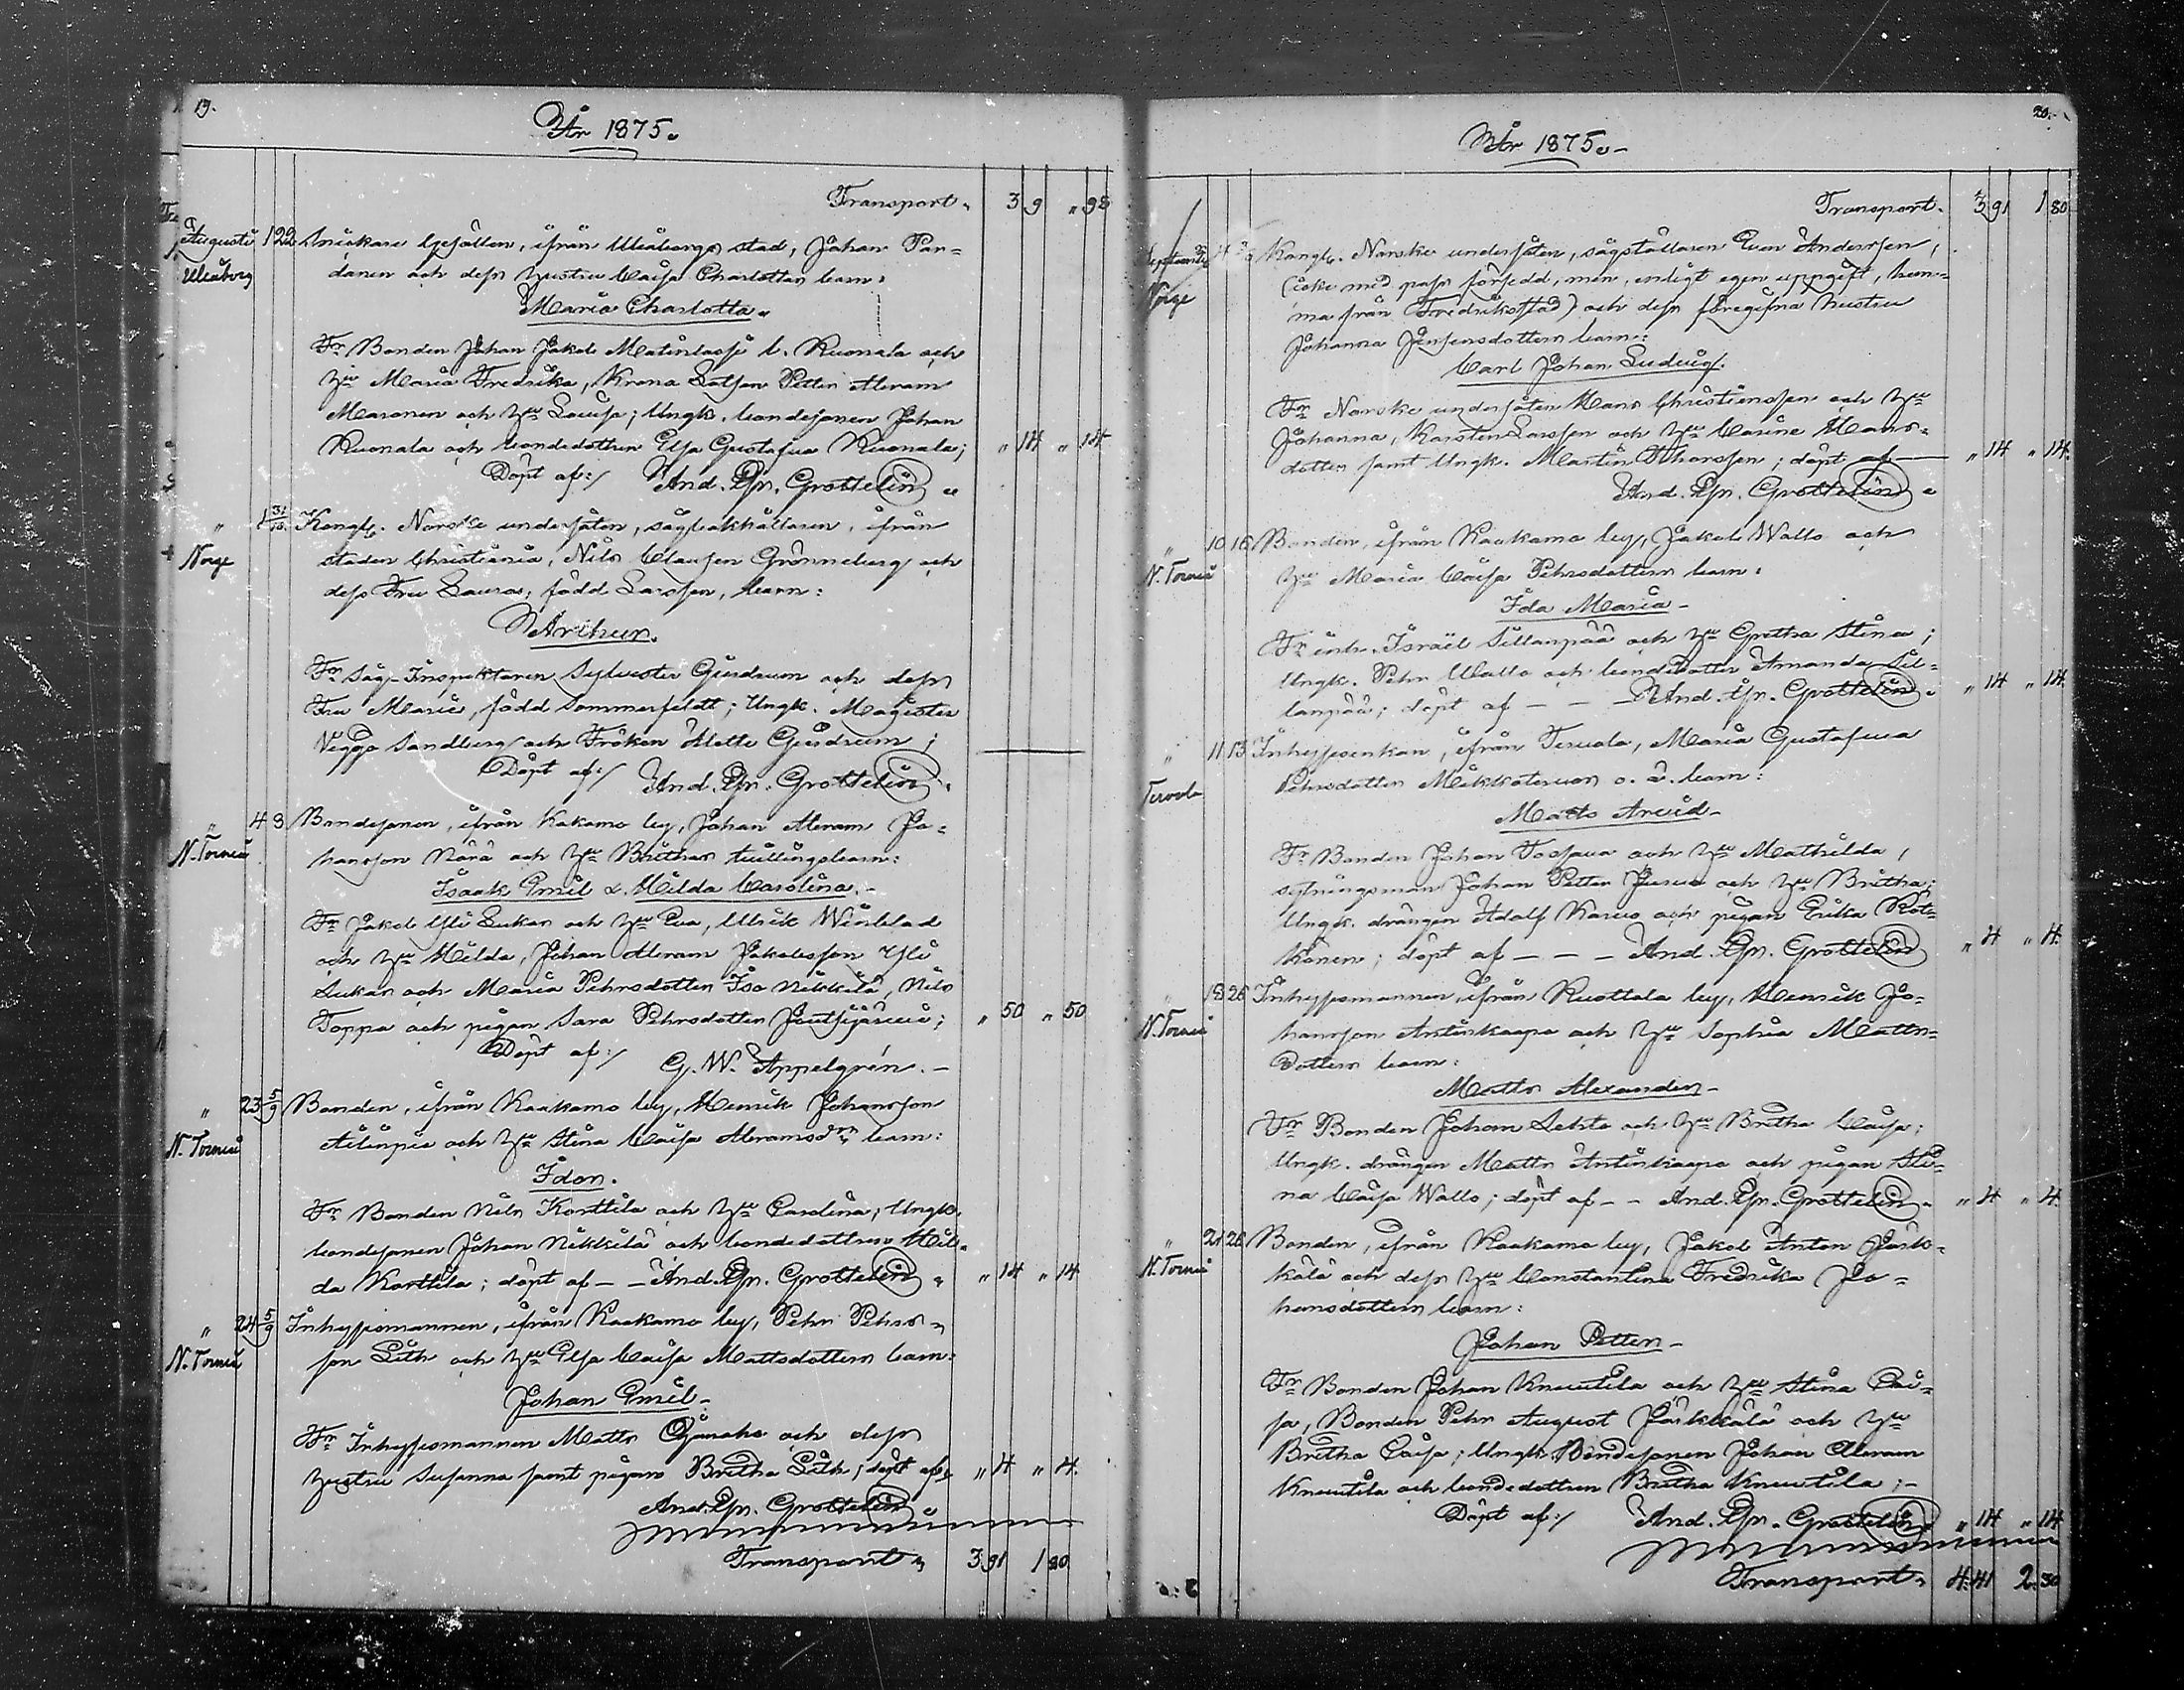 19.
År 1875.
Transport. 3 9 " 98
Augusti 1 22 Snickare Gesällen, ifrån Uleåborgs stad, Johan Pan-
Uleåborg danen och dess hustru Caisa Charlottas barn:
Maria Charlotta.
Fr Bonden Johan Jakob Matinlassi l. Ruonala och
hu Maria Fredrika, Krono Lotsen Petter Abram
Maronen och hu Lovisa; Ungk. bondesonen Johan
Ruonala och bondedottren Elsa Gustafva Ruonala; " 14 " 14
Döpt af:/ And. Joh. Grottelin
" 1 31/10 Kongl. Norske undersåten, sågbokhållaren, ifrån
Norge staden Christiania, Nils Clausen Grönneberg och
dess Fru Lauras, född Larssen, barn:
Arthur.
Fr Såg-Inspektoren Sylvester Gjerdrum och dess
Fru Marie, född Sommerfeldt; Ungk. Magister
Viggo Sandberg och Fröken Alette Gjerdrum;
Döpt af:/ And. Joh. Grottelin
" 4 8 Bondesonen, ifrån Kakamo by, Johan Abram Jo-
N. Torneå hansson Närä och hu Brithas tvillingsbarn:
Isaak Emil & Hilda Carolina.-
Fr Jakob Yli Liakka och hu Eva, Ulrik Winblad
och hu Hilda, Johan Abram Jakobsson Yli
Liakka och Maria Pehrsdotter Iso Nikkilä, Nils
Toppo och pigan Sara Pehrsdotter Joutsijärvi; " 50 " 50
Döpt af:/ G. W. Appelgrén.-
" 23 5/9 Bonden, ifrån Kaakamo by, Henrik Johansson
N. Torneå Ailinpiä och hu Stina Caisa Abramsdrs barn:
Idon.
Fr Bonden Nils Korttila och hu Carolina; Ungk.
bondesonen Johan Nikkilä och bondedottren Hil-
da Korttila; döpt af - - And. Joh. Grottelin " 14 " 14
" 24 5/9 Inhysesmannen, ifrån Kaakamo by, Pehr Pehrs-
N. Torneå son Lith och hu Elsa Caisa Mattsdotters barn:
Johan Emil.-
Fr Inhysesmannen Matts och dess
hustru Susanna samt pigan Britha Lith; döpt af " 4 " 4.
And. Joh. Grottelin
Transport. 3 91 1 80
20.
År 1875.-
Transport. 3 91 1 80
September 4 Kongl. Norske undersåten, sågställaren Even Anderssen,
Norge (icke med pass försedd, men, enligt egen uppgift, hem-
ma från Fredriksstad) och dess föregifna hustru
Johanna Jensensdotters barn:
Carl Johan Ludvig.
Fr Norske undersåten Hans Christianssen och hu
Johanna, Karsten Larssen och hu Carine Hans-
dotter samt Ungk. Martin Thorssen; döpt af " 14 " 14.
And. Joh. Grottelin
" 10 16 Bonden, ifrån Kaakamo by, Jakob Wallo och
N. Torneå hu Maria Caisa Pehrsdotters barn:
Ida Maria-
Fr inh. Israël Sillanpää och hu Gretha Stina;
Ungk. Pehr Wallo och bondedotter Amanda Sil-
lanpää; döpt af - - - And. Joh. Grottelin. " 14 " 14.
" 11 13 Inhysesenkan, ifrån Tervola, Maria Gustafva
Tervola Pehrsdotter Mikkoteruas o. ä. barn:
Matts Arvid-
Fr Bonden Johan Tossava och hu Mathilda,
sytningsman Johan Petter Jurva och hu Britha;
Ungk. drängen Adolf Karvo och pigan Erika Kot-
kanen; döpt af - - - And. Joh. Grottelin " 4 " 4.
" 18 26 Inhysesmannen, ifrån Ruottala by, Henrik Jo-
N. Torneå hansson Antinkaapo och hu Sophia Matts-
dotters barn:
Matts Alexander-
Fr Bonden Johan Lehto och hu Britha Caisa;
Ungk. drängen Matts Antinkaapo och pigan Sti-
na Caisa Wallo; döpt af - - And. Joh. Grottelin " 4 " 4.
" 21 26 Bonden, ifrån Kaakamo by, Jakob Anton Järk-
N. Torneå kälä och dess hu Constantina Fredrika Jo-
hansdotters barn:
Johan Petter-
Fr Bonden Johan Knuutila och hu Stina Cai-
sa, Bonden Pehr August Järkkälä och hu
Britha Caisa; Ungk. Bondesonen Johan Abram
Knuutila och bondedottren Britha Knuutila;-
Döpt af:/ And. Joh. Grottelin " 14 " 14
Transport. 4.41 2.30